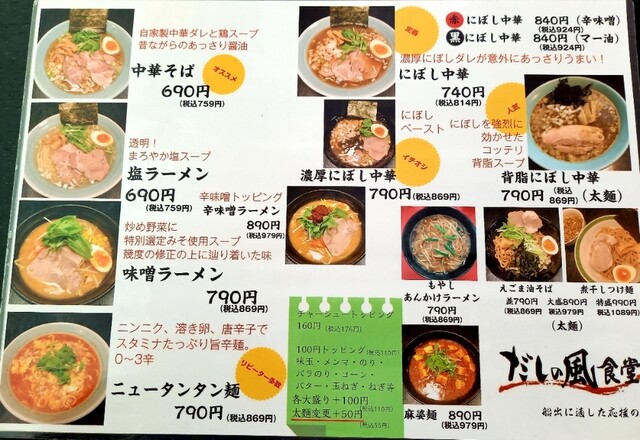 自家製中華ダレと鶏スープ
昔ながらのあっさり醤油
中華そば
オススメ
690円
(税込759円)
透明!
まろやか塩スープ
塩ラーメン
690円
(税込759円)
辛味噌トッピング
辛味噌ラーメン
890円
(税込979円)
炒め野菜に
特別選定みそ使用スープ
幾度の修正の上に辿り着いた味
味噌ラーメン
790円
(税込869円)
ニンニク、溶き卵、唐辛子で
スタミナたっぷり旨辛麺。
0〜3辛
リピーター多数
ニュータンタン麺
790円
(税込869円)
定番
赤 にぼし中華 840円(辛味噌)
(税込924円)
黒 にぼし中華 840円(マー油)
(税込924円)
濃厚にぼしダレが意外にあっさりうまい!
にぼし中華
740円
(税込814円)
にぼし
ペースト
イチオシ
濃厚にぼし中華
790円
(税込869円)
人気
にぼしを強烈に
効かせた
コッテリ
背脂スープ
背脂にぼし中華
790円(税込869円)(太麺)
もやし
あんかけラーメン
790円
(税込869円)
えごま油そば
煮干しつけ麺
並790円 大盛890円 特盛990円
(税込869円 税込979円 税込1089円)
(太麺)
チャーシュートッピング
160円(税込176円)
100円トッピング(税込110円)
味玉・メンマ・のり・
バラのり・コーン・
バター・玉ねぎ・ねぎ等
各大盛り+100円
(税込110円)
太麺変更+50円
(税込55円)
麻婆麺 890円
(税込979円)
だしの風食堂
船出に適した応援の